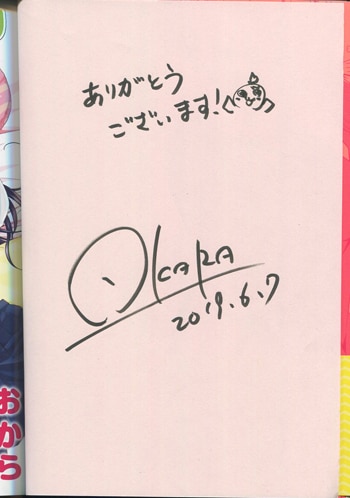 ありがとう
ございます!
OKARA
2019.6.7
おから